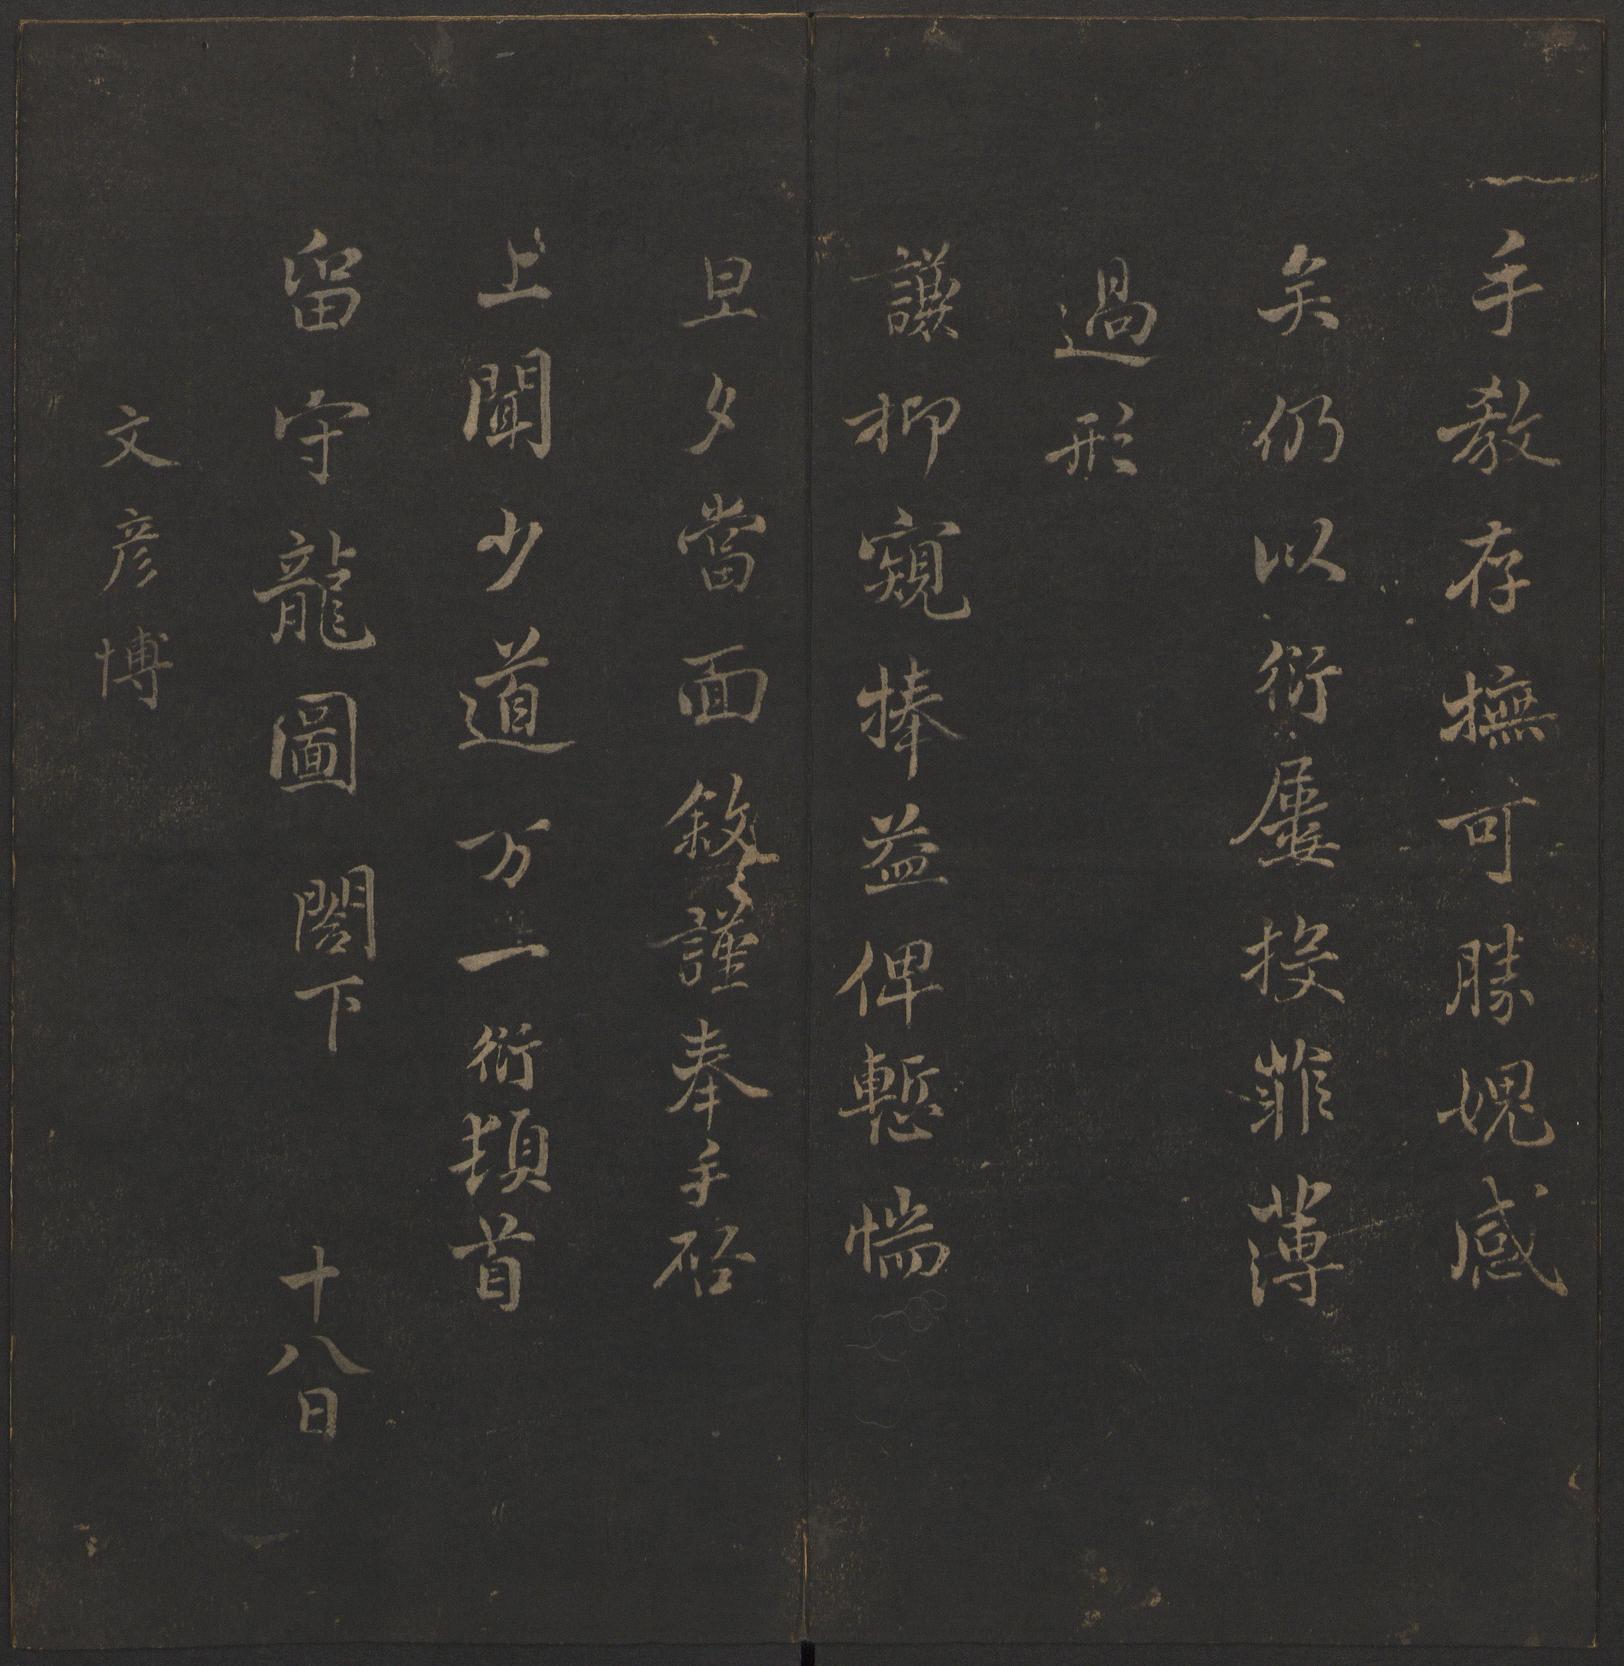 手教存撫可勝媿感
矣仍以衍屢投菲薄
過形
謙抑窺捧益俾慙惴
旦夕當面敘謹奉手啓
上聞少道万一衍頓首
留守龍圖閣下 十八日
文彦博